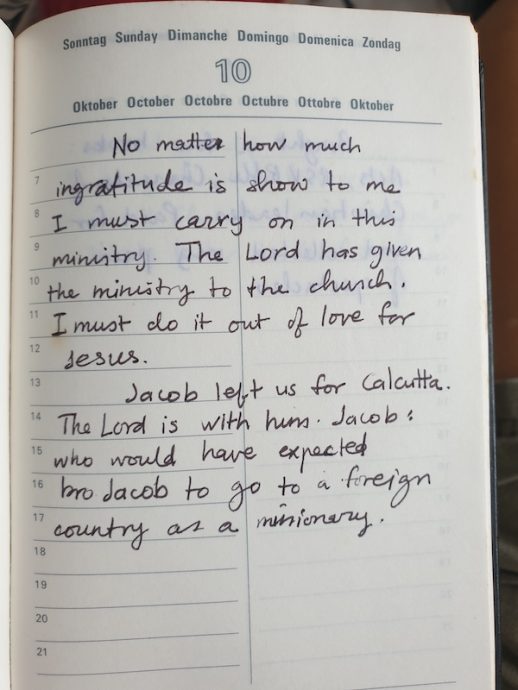 Sonntag Sunday Dimanche Domingo Domenica Zondag
10
Oktober October Octobre Octubre Ottobre Oktober
No matter how much
7 ingratitude is show to me
8 I must carry on in this
9 ministry. The Lord has given
10 the ministry to the church.
11 I must do it out of love for
12 Jesus.
13 Jacob left us for Calcutta.
14 The Lord is with him. Jacob:
15 who would have expected
16 bro Jacob to go to a foreign
17 country as a missionary.
18
19
20
21